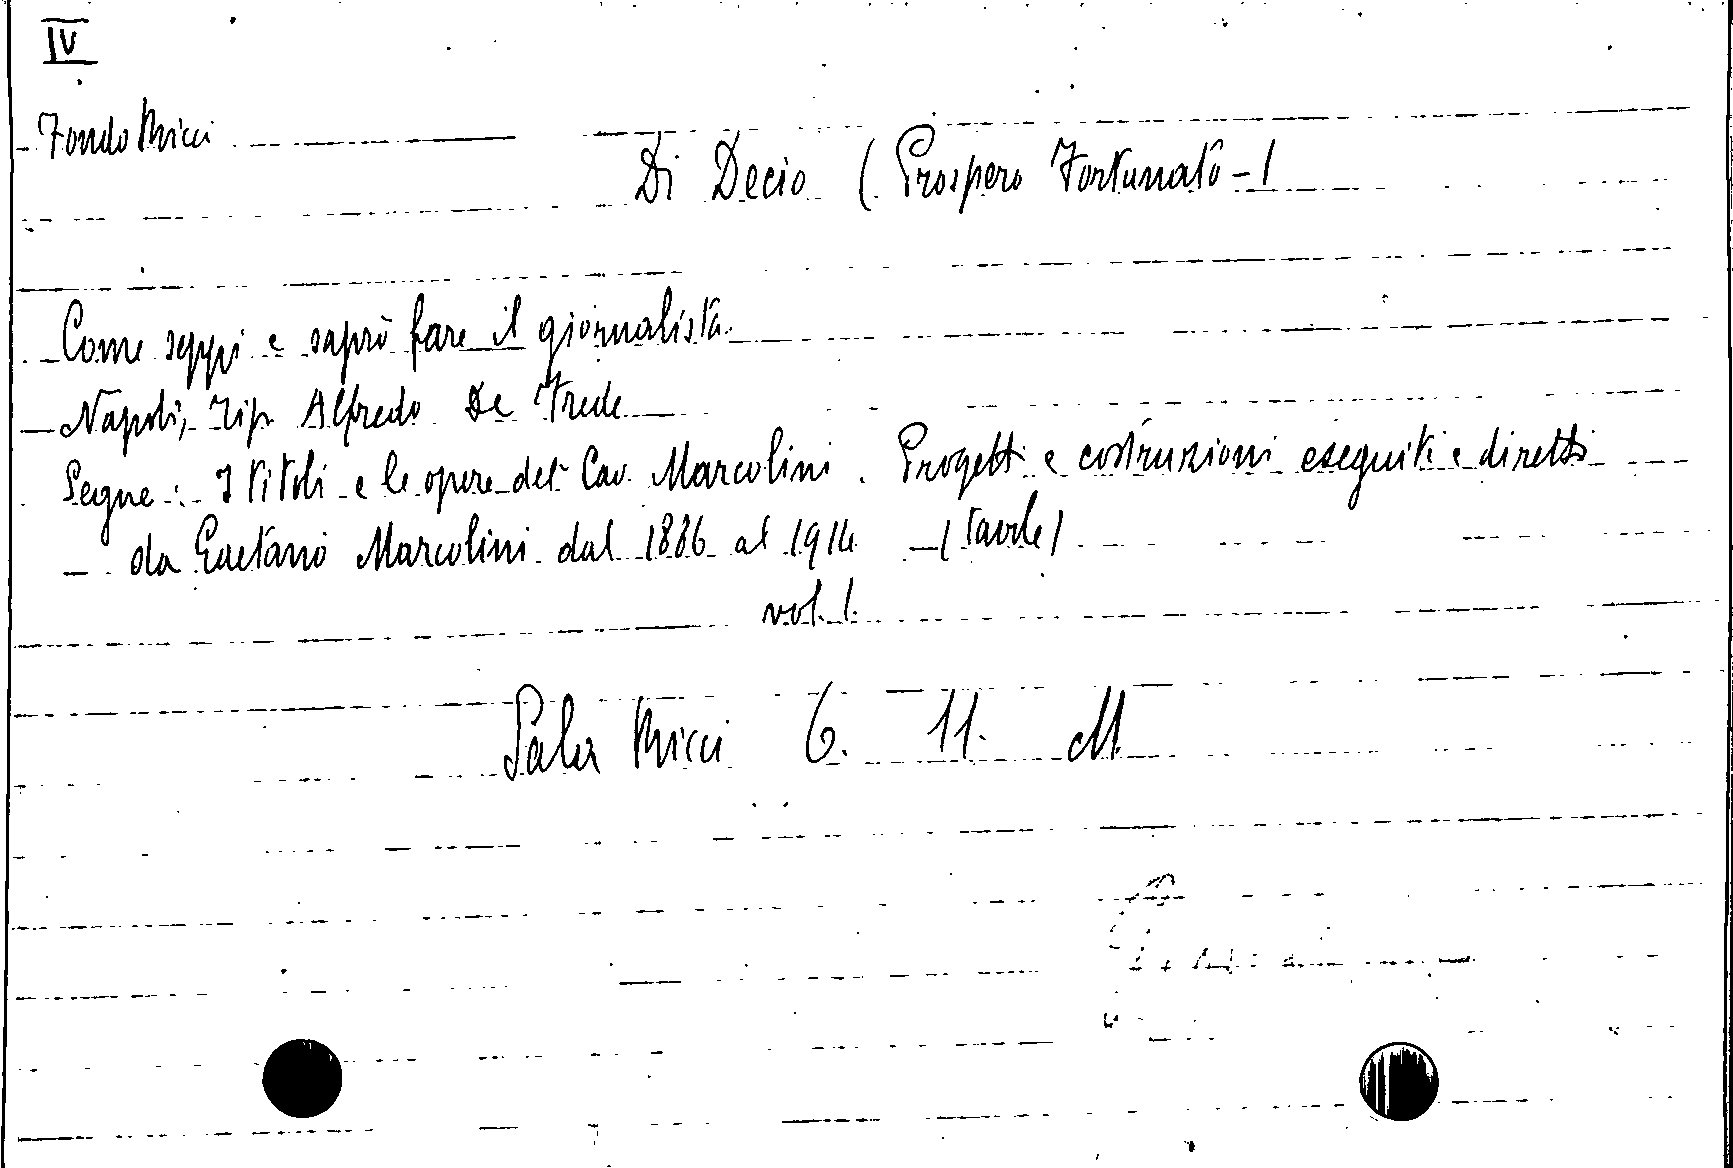 IV
Fondo Ricci
Di Decio (Prospero Fortunato-)
Come seppi e saprò fare il giornalista.
Napoli, Tip. Alfredo De Frede
Segue: I titoli e le opere del Cav. Marcolini. Progetti e costruzioni eseguiti e diretti
da Gaetano Marcolini dal 1886 al 1914 (tavole)
vol. 1.
Sala Ricci 6. 11. M.